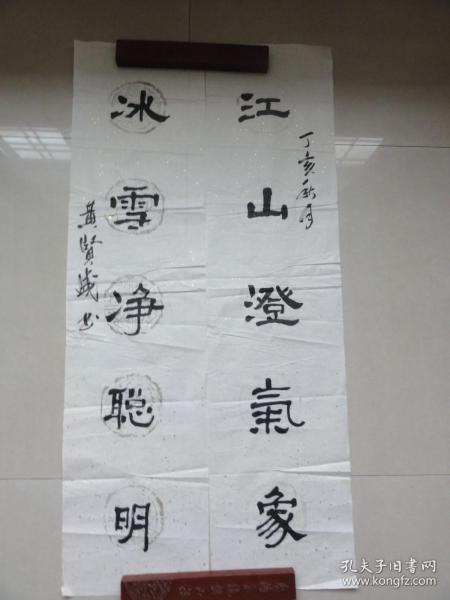 江山澄氣象
丁亥秋月
冰雪净聪明
黄贤成书
孔夫子旧书网
www.kongfz.com